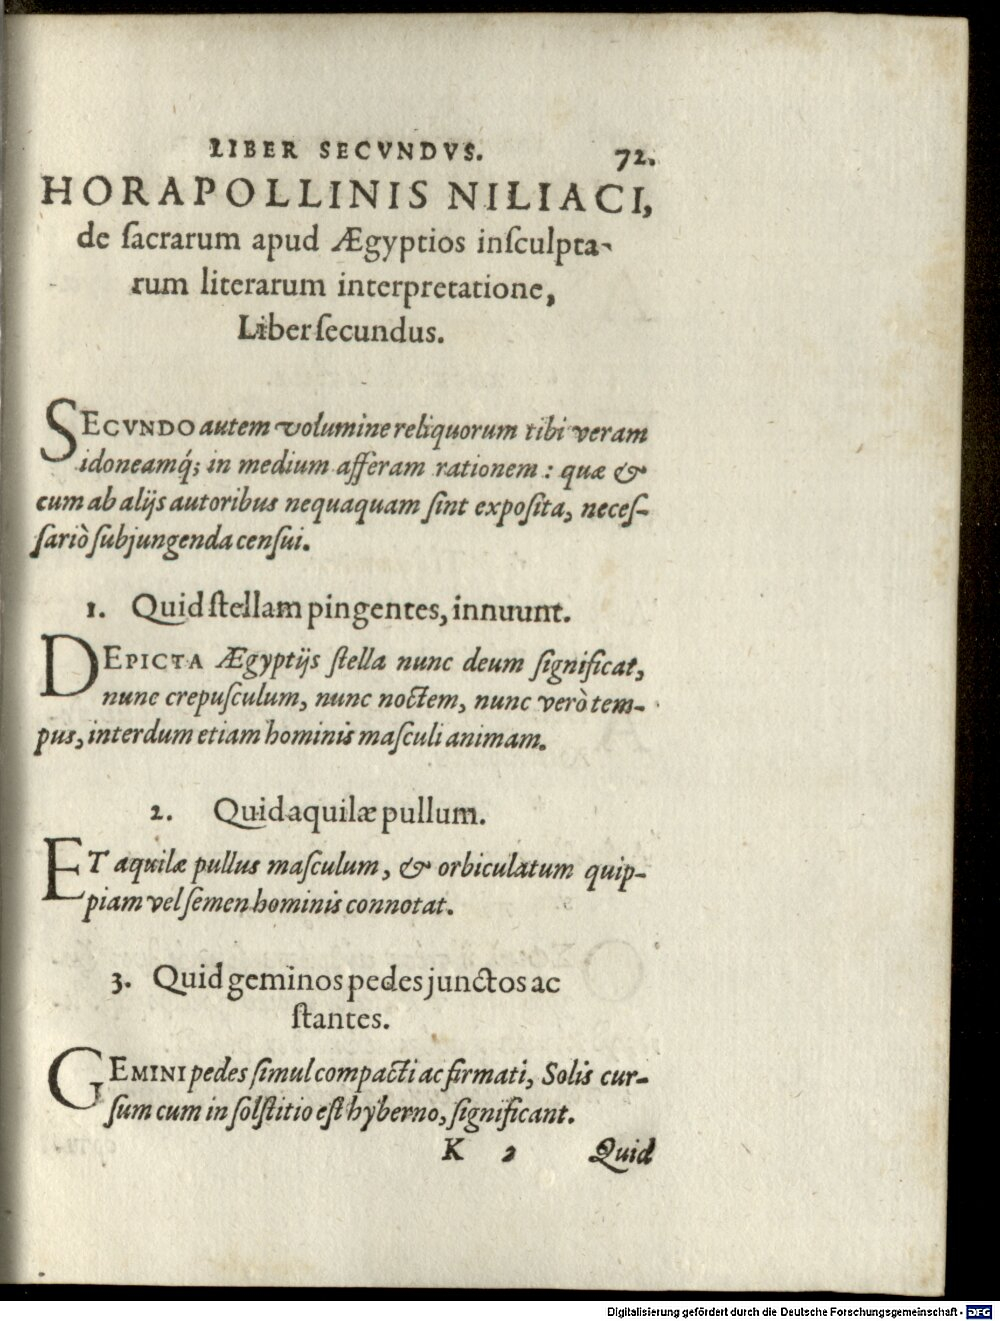 LIBER SECVNDVS. 72.
HORAPOLLINIS NILIACI,
de ſacrarum apud Ægyptios inſculpta-
rum literarum interpretatione,
Liber ſecundus.
SECVNDO autem volumine reliquorum tibi veram
idoneamq́; in medium afferam rationem: quæ &
cum ab alijs autoribus nequaquam ſint expoſita, neceſ-
ſariò ſubjungenda cenſui.
1. Quid ſtellam pingentes, innuunt.
DEPICTA Ægyptijs ſtella nunc deum ſignificat,
nunc crepuſculum, nunc noctem, nunc verò tem-
pus, interdum etiam hominis maſculi animam.
2. Quid aquilæ pullum.
ET aquilæ pullus maſculum, & orbiculatum quip-
piam vel ſemen hominis connotat.
3. Quid geminos pedes junctos ac
ſtantes.
GEMINI pedes ſimul compacti ac firmati, Solis cur-
ſum cum in ſolſtitio eſt hyberno, ſignificant.
K 2 Quid
Digitalisierung gefördert durch die Deutsche Forschungsgemeinschaft - DFG